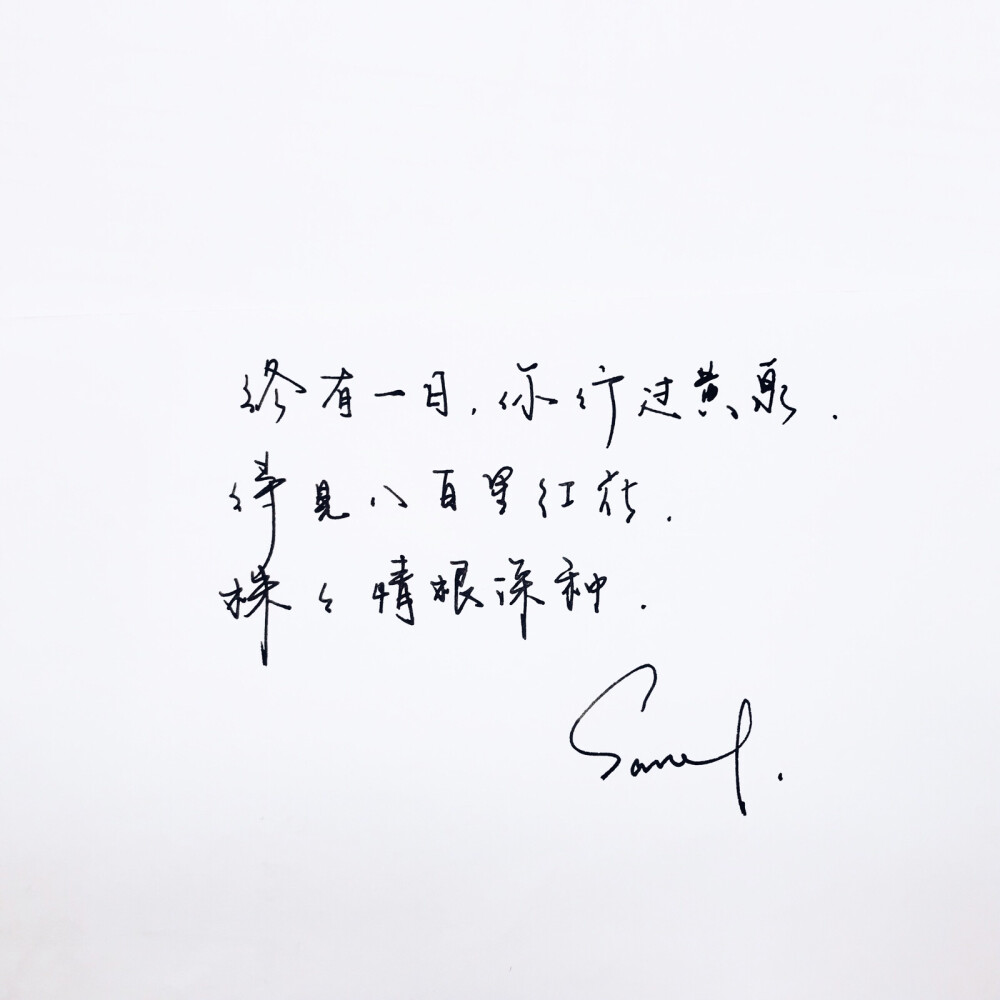 终有一日,你行过黄泉.
得见八百里红花.
株々情根深种.